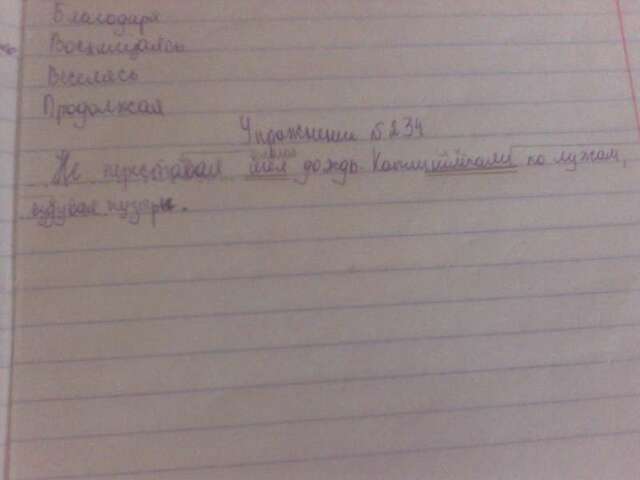 Благодаря
Восхищаясь
Веселясь
Продолжая
Упражнение №234
глаг
Не переставая шёл дождь. Капли шлёпали по лужам,
вздувая пузыри.